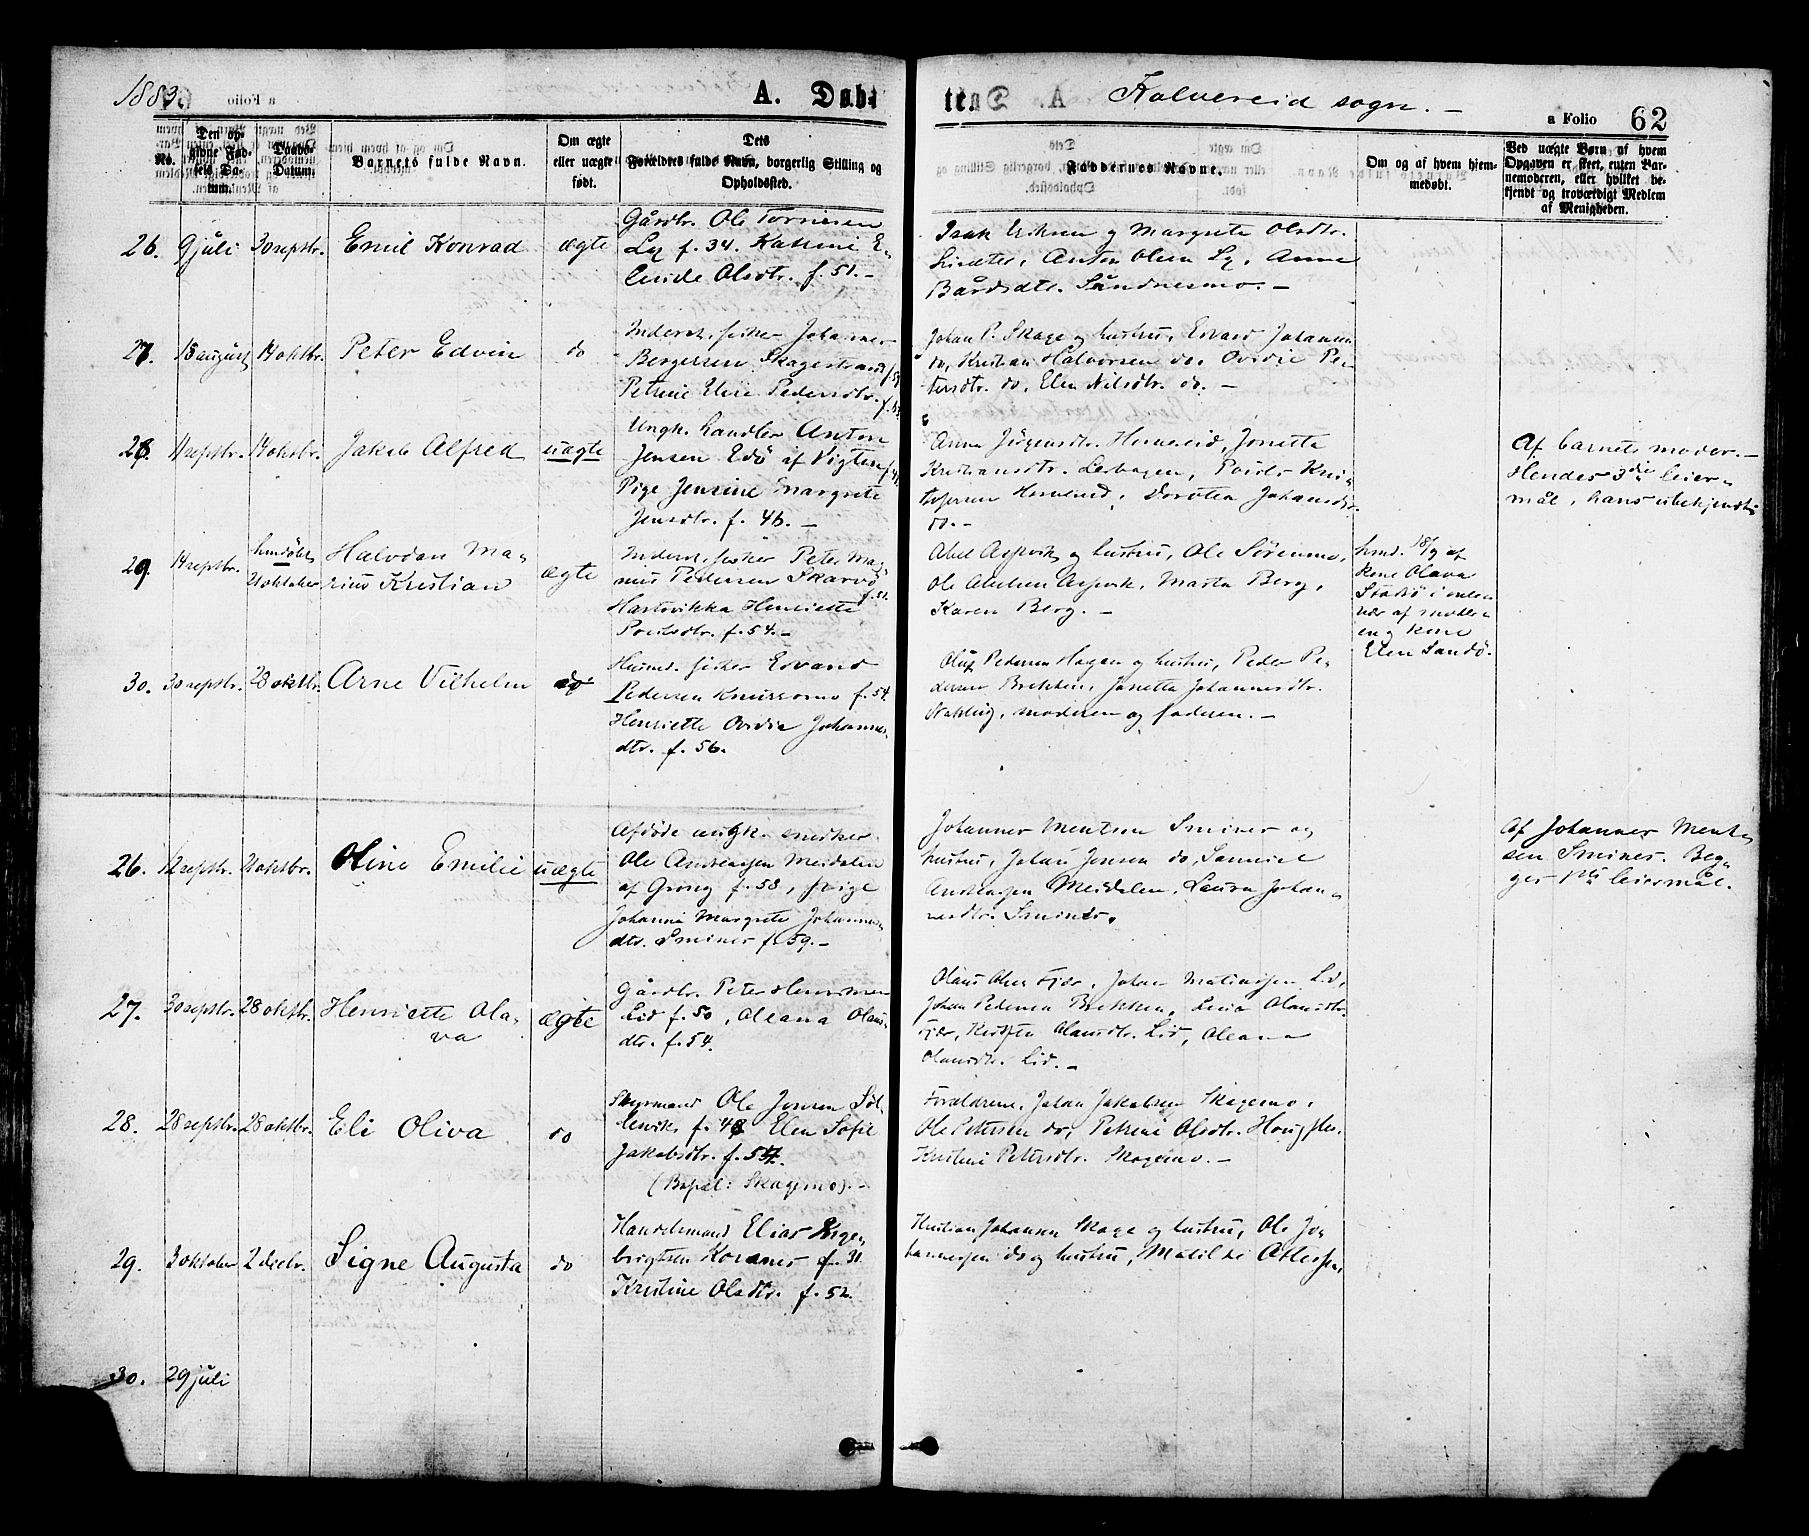 1883.
A. Døbte
Kolvereid sogn. -
a Folio 62
No.
Den op-
givne Fød-
sels Da-
tum.
Daabs-
Datum.
Barnets fulde Navn.
Om ægte
eller uægte
født.
Dets
Forældres fulde Navn, borgerlig Stilling og
Opholdssted.
Faddernes Navne.
Om og af hvem hjem-
medøbt.
Ved uægte Børn af hvem
Opgaven er skeet, enten Bar-
nemoderen, eller hvilket be-
kjendt og troværdigt Medlem
af Menigheden.
26. 9 juli 30 septbr. Emil Konrad ægte
Gårdbr. Ole
Lq f. 34. Katrine E-
Olsdtr. f. 51. -
Isak og Margrete Olsdtr.
Anton Olsen Lq, Anne
Bårdsdtr. Sandnesmo. -
27. 18 august 14 oktbr. Peter Edvin do
Inderst, fisker Johannes
Bergersen Skagestrand
Petrine Elise Pedersdtr.
Johan P. Skage og hustru, Edvard Johansen
do, Kristian Halvorsen do, Ovidie Pe-
tersdtr. do, Elen Nilsdtr. do. -
28. 11 septbr. 14 oktbr. Jakob Alfred uægte
Ungk. handler Anton
Jensen Edø af Vigten
Pige Jensine Margrete
Jensdtr. f. 46. -
Anna Jørgensdtr. Jonetta
Kristiansdtr. Povel Kri-
stofersen Dorotea Johansdtr.
do. -
Af barnets moder. -
Hendes 3die leier-
mål, hans ubekjendt.
29. 14 septbr. hmdøbt 21 oktober Halvdan Ma-
rius Kristian ægte
Inderst, fisker Peter Mag-
nus Pedersen Skarvø f. 51.
Hartvikka Henriette
Povelsdtr. f. 54. -
Abel Aspvik og hustru, Ole Sørenmo,
Ole Abelsen Aspvik, Marta Berg,
Karen Berg. -
hmd. 18/9 af
kone Olava
Stadsø i over
vær af moder
en og kone
Elen Sandø.
30. 30 septbr. 28 oktbr. Arne Vilhelm do
Husmd. fisker Edvard
Pedersen f. 54.
Henriette Ovidia Johannes-
dtr. f. 56.
Oluf Pedersen Hagen og hustru, Peder Pe-
dersen Brekken, Janetta Johannesdtr.
moderen og faderen. -
26. 12 septbr. 21 oktbr. Oline Emilie uægte
Afdøde ungk. snedker
Ole Andreassen Meidalen
af Grong f. 58, pige
Johanna Margrete Johannes-
dtr. Smines f. 59. -
Johannes Mentsen Smines og
hustru, Johan Jensen do, Samuel
Andreassen Meidalen, Laura Johan-
nesdtr. Smines.
Af Johannes Ment-
sen Smines. Beg-
ges 1ste leiermål.
27. 30 septbr. 28 oktbr. Henriette Ola-
va ægte
Gårdbr. Peter
Lid f. 50, Oleana Olaus-
dtr. f. 54.
Olaus Olsen Fjær, Johan Matiassen Lid,
Johan Pedersen Brekken, Olausdtr.
Fjær, Olausdtr. Lid, Oleana
Olausdtr. Lid. -
28. 28 septbr. 28 oktbr. Eli Oliva do
Ole Jensen Søl-
lesvik f. 48 Elen Sofie
Jakobsdtr. f. 54.
(Bopæl: Skagemo). -
Forældrene, Johan Jakobsen Skagemo,
Ole Petersen do, Petrine Olsdtr.
Kristine Petersdtr. Skagemo. -
29. 3 oktober 2 decbr. Signe Augusta do
Handelsmand Elias Inge-
brigtsen f. 31.
Kristine Olsdtr. f. 52.
Kristian Johansen Skage og hustru, Ole Jo-
hannessen do og hustru, Matilde
30. 29 juli